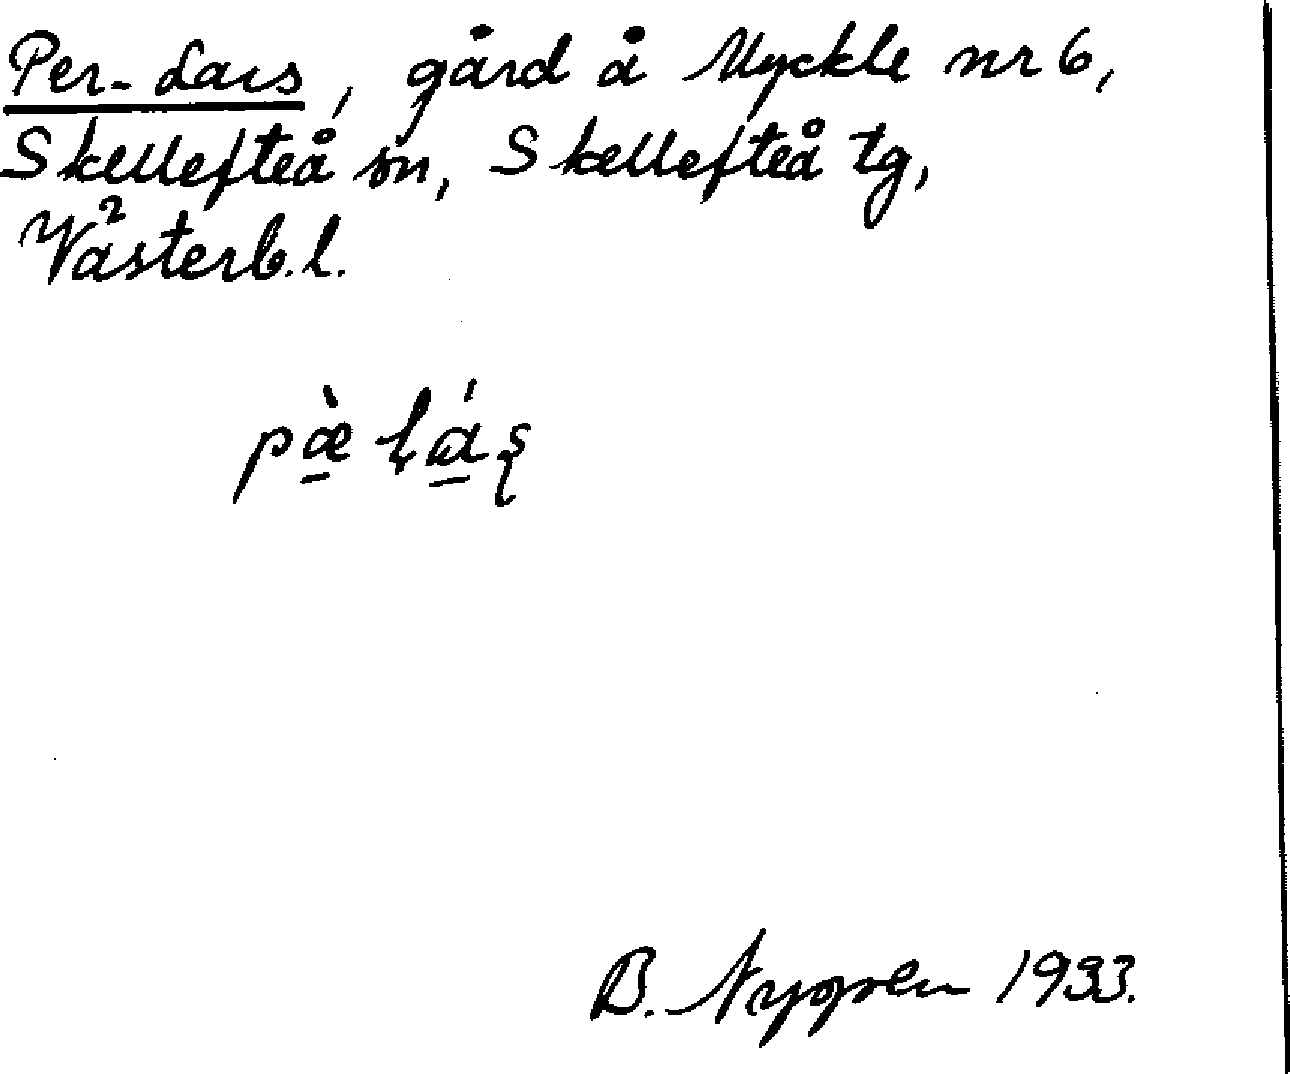 Per-Lars, gård å Myckle nr 6,
Skellefteå sn, Skellefteå tg,
Västerb. l.
pæ̀ lɑ́ʂ
B. Nygren 1933.